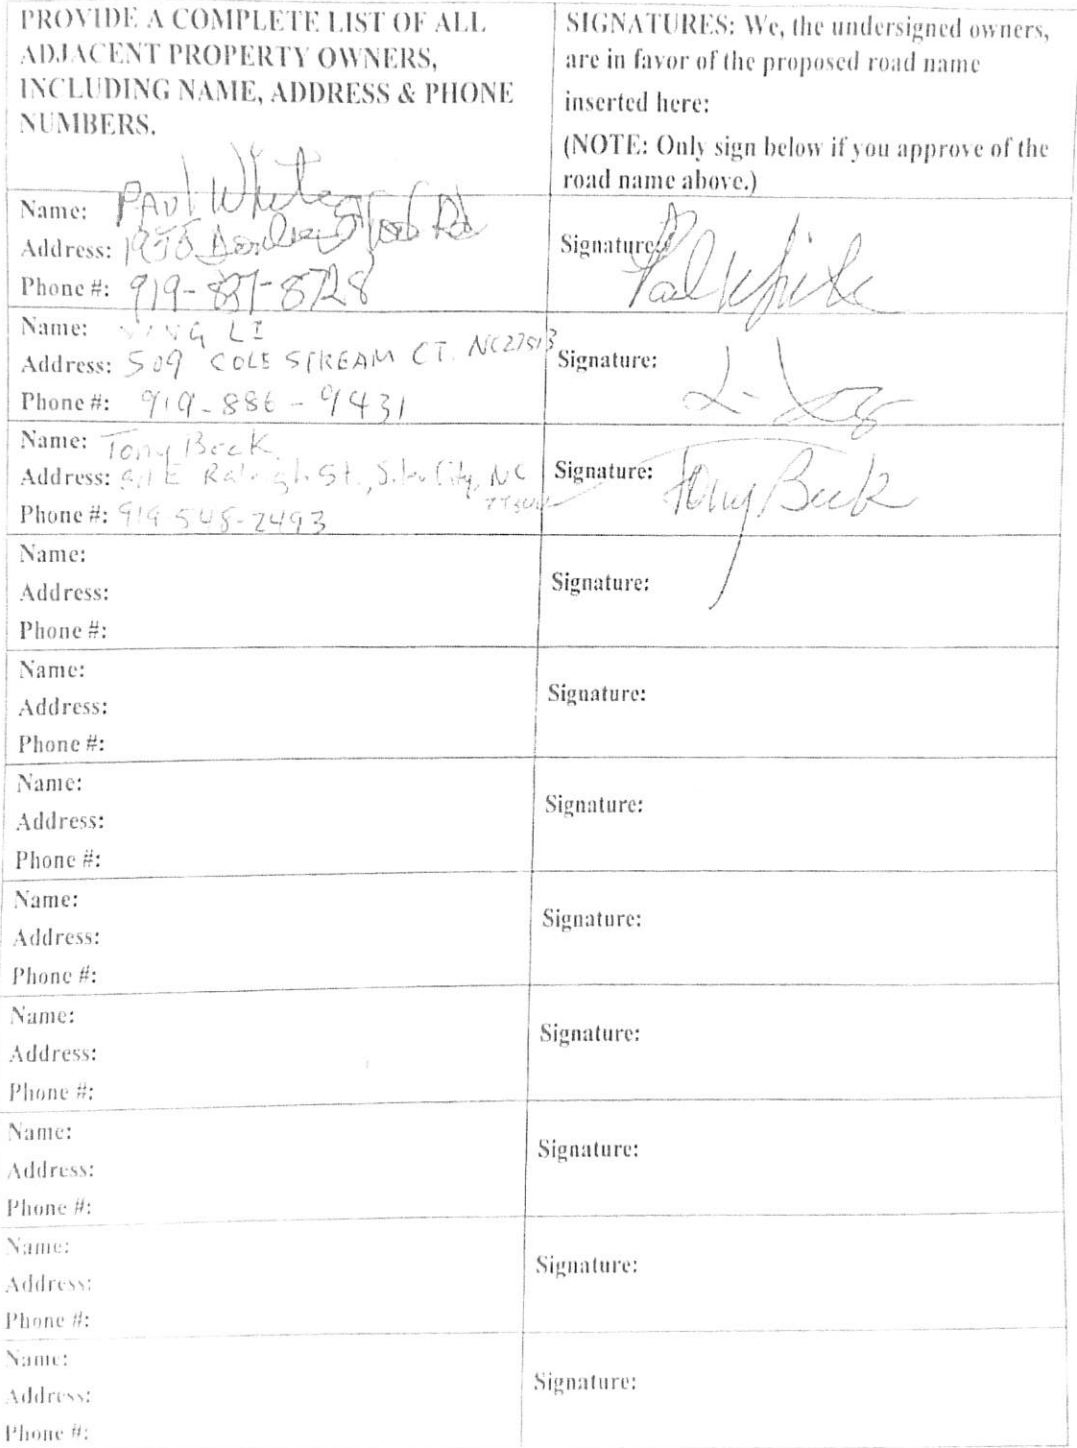 PROVIDE A COMPLETE LIST OF ALL
ADJACENT PROPERTY OWNERS,
INCLUDING NAME, ADDRESS & PHONE
NUMBERS.
SIGNATURES: We, the undersigned owners,
are in favor of the proposed road name
inserted here:
(NOTE: Only sign below if you approve of the
road name above.)
Name: Paul White
Address: Rd
Phone #: 919-837-5728
Signature: Paul White
Name: LI
Address: 509 COLE STREAM CT. NC27513
Phone #: 919-886-9431
Signature:
Name: Tony Beck
Address: E Raleigh St., Siler City, NC
Phone #: 919 548-2493
Signature: Tony Beck
Name:
Address:
Phone #:
Signature:
Name:
Address:
Phone #:
Signature:
Name:
Address:
Phone #:
Signature:
Name:
Address:
Phone #:
Signature:
Name:
Address:
Phone #:
Signature:
Name:
Address:
Phone #:
Signature:
Name:
Address:
Phone #:
Signature:
Name:
Address:
Phone #:
Signature: